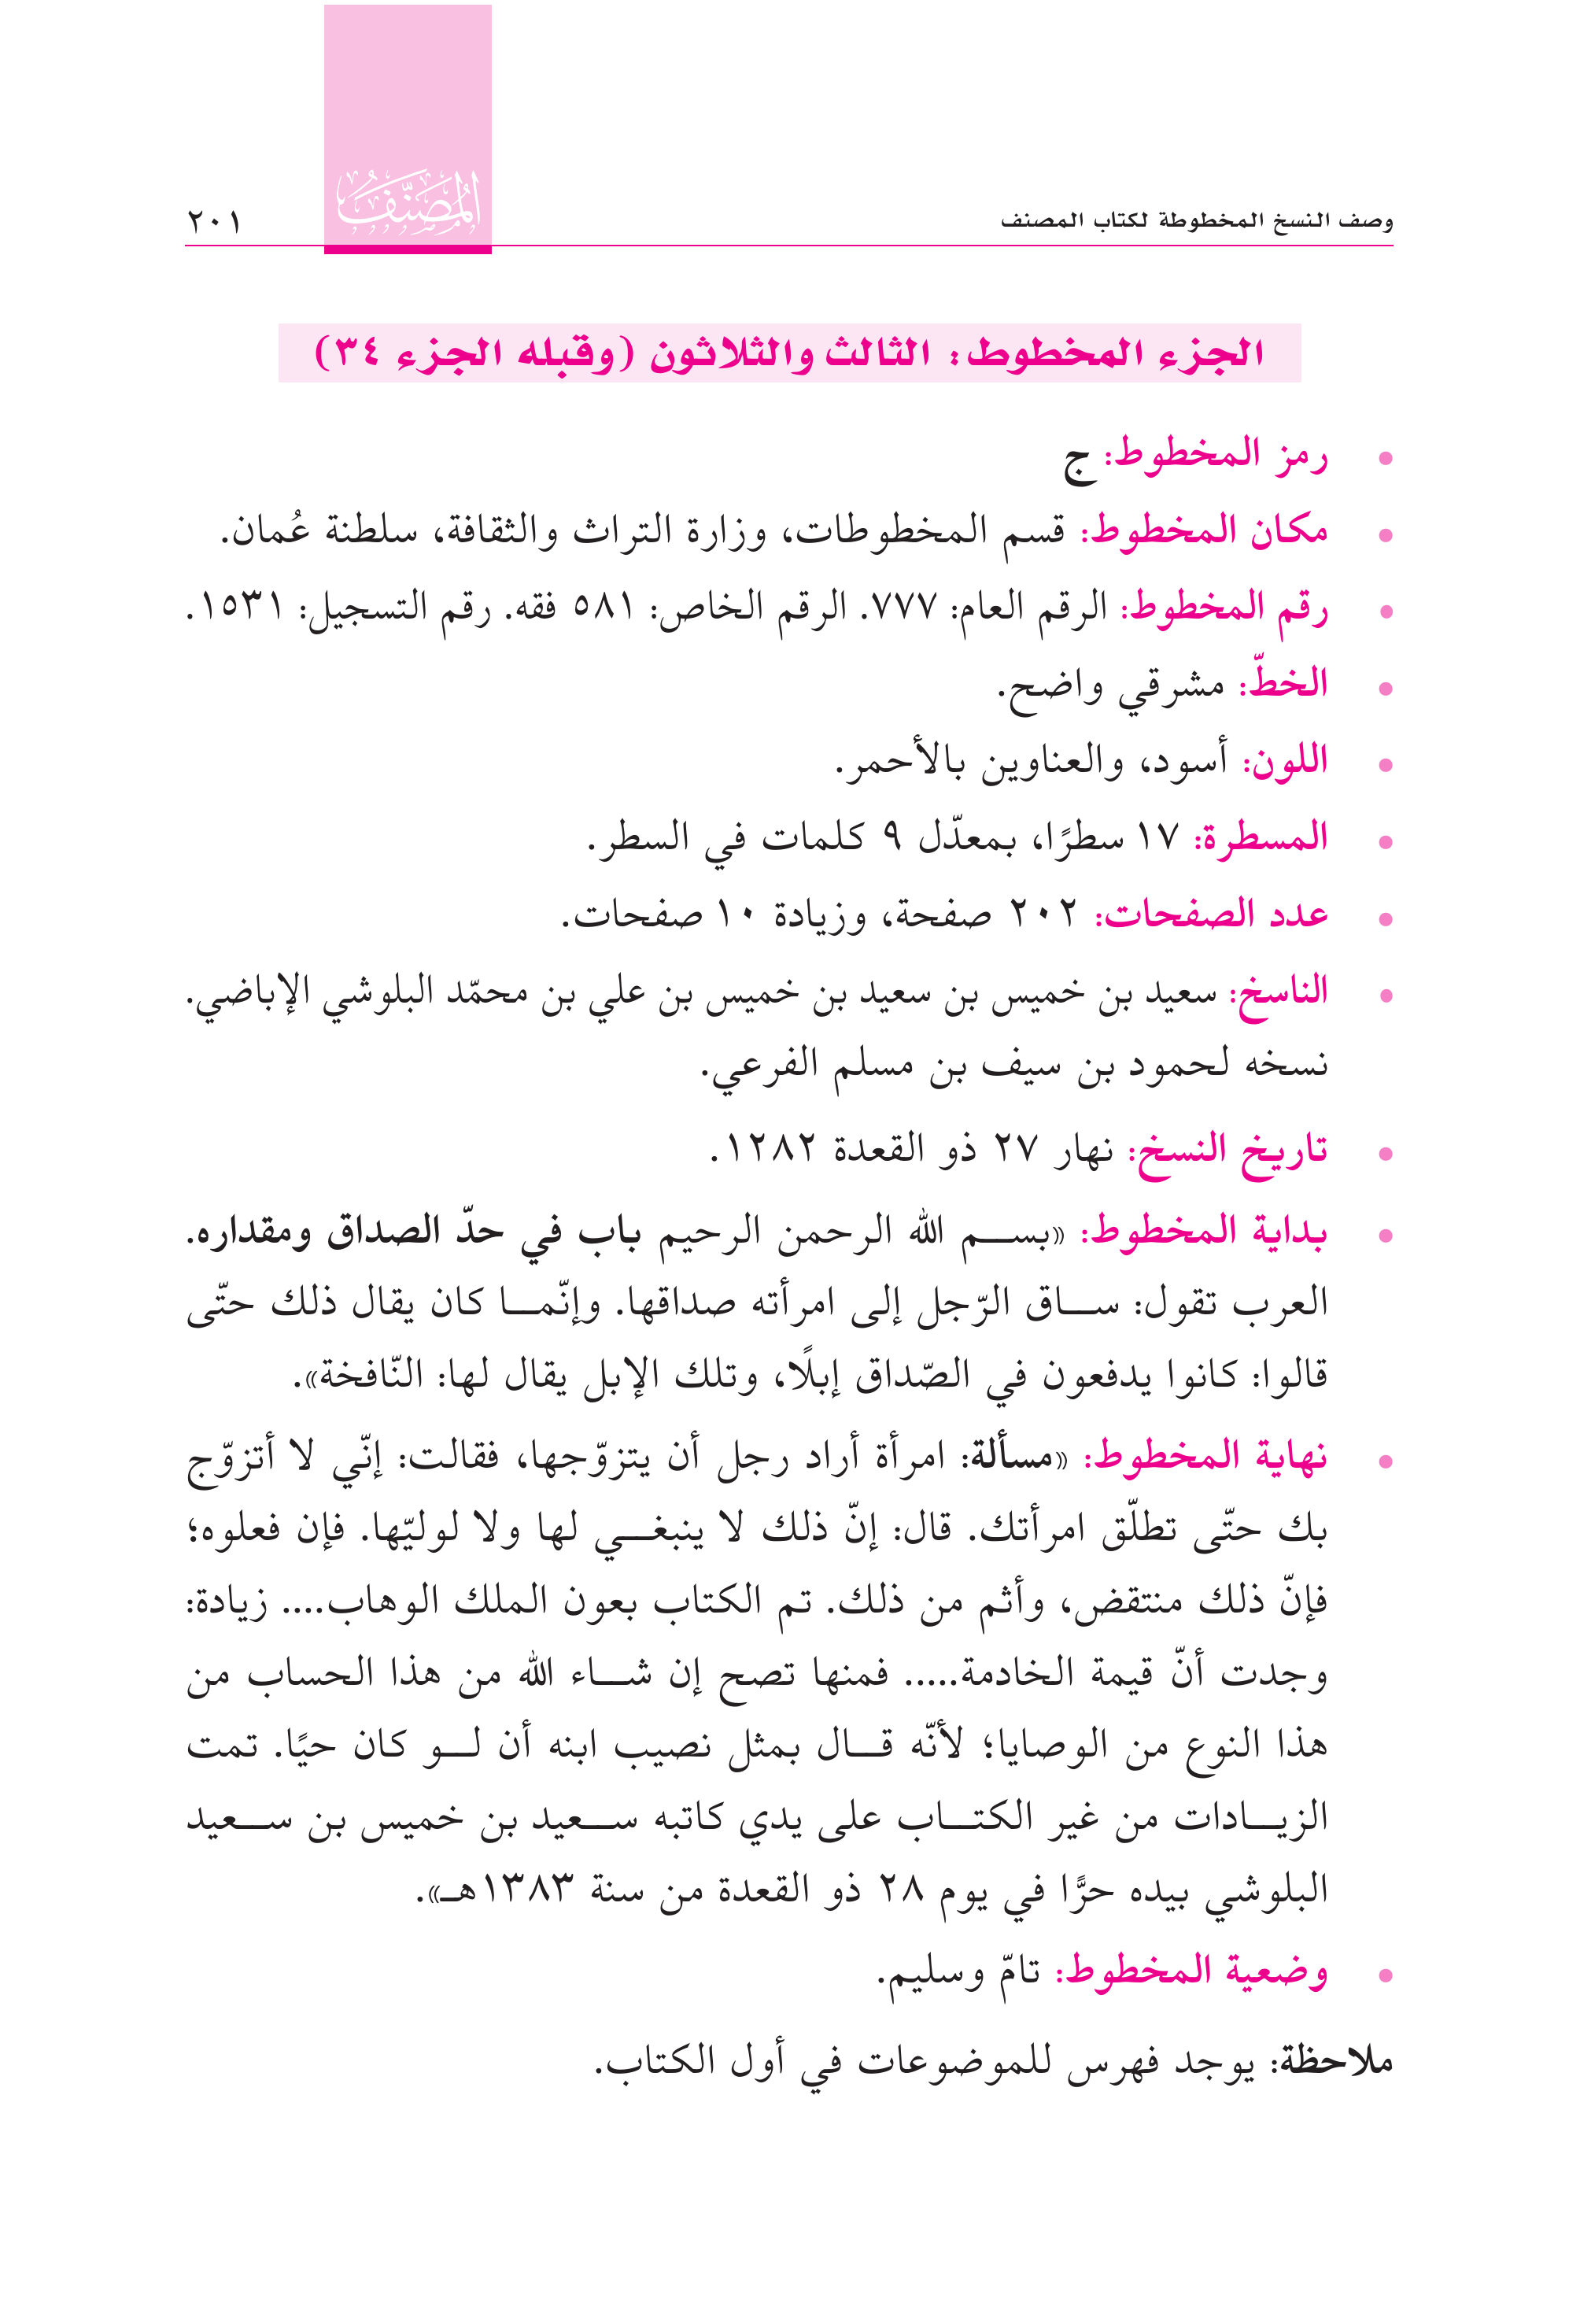 وصف النسخ المخطوطة لكتاب المصنف
المُصَنَّف
٢٠١
الجزء المخطوط: الثالث والثلاثون (وقبله الجزء ٣٤)
• رمز المخطوط: ج
• مكان المخطوط: قسم المخطوطات، وزارة التراث والثقافة، سلطنة عُمان.
• رقم المخطوط: الرقم العام: ٧٧٧. الرقم الخاص: ٥٨١ فقه. رقم التسجيل: ١٥٣١.
• الخطّ: مشرقي واضح.
• اللون: أسود، والعناوين بالأحمر.
• المسطرة: ١٧ سطرًا، بمعدّل ٩ كلمات في السطر.
• عدد الصفحات: ٢٠٢ صفحة، وزيادة ١٠ صفحات.
• الناسخ: سعيد بن خميس بن سعيد بن خميس بن علي بن محمّد البلوشي الإباضي.
نسخه لحمود بن سيف بن مسلم الفرعي.
• تاريخ النسخ: نهار ٢٧ ذو القعدة ١٢٨٢.
• بداية المخطوط: «بسم الله الرحمن الرحيم باب في حدّ الصداق ومقداره.
العرب تقول: ساق الرّجل إلى امرأته صداقها. وإنّما كان يقال ذلك حتّى
قالوا: كانوا يدفعون في الصّداق إبلًا، وتلك الإبل يقال لها: النّافخة».
• نهاية المخطوط: «مسألة: امرأة أراد رجل أن يتزوّجها، فقالت: إنّي لا أتزوّج
بك حتّى تطلّق امرأتك. قال: إنّ ذلك لا ينبغي لها ولا لوليّها. فإن فعلوه؛
فإنّ ذلك منتقض، وأثم من ذلك. تم الكتاب بعون الملك الوهاب.... زيادة:
وجدت أنّ قيمة الخادمة..... فمنها تصح إن شاء الله من هذا الحساب من
هذا النوع من الوصايا؛ لأنّه قال بمثل نصيب ابنه أن لو كان حيًا. تمت
الزيادات من غير الكتاب على يدي كاتبه سعيد بن خميس بن سعيد
البلوشي بيده حرًّا في يوم ٢٨ ذو القعدة من سنة ١٣٨٣هـ».
• وضعية المخطوط: تامّ وسليم.
ملاحظة: يوجد فهرس للموضوعات في أول الكتاب.